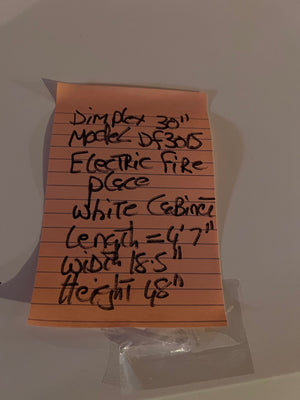 Dimplex 30"
Model Df3015
Electric Fire
place
White Cabinet
Length = 4' 7"
Width 18.5"
Height 48"